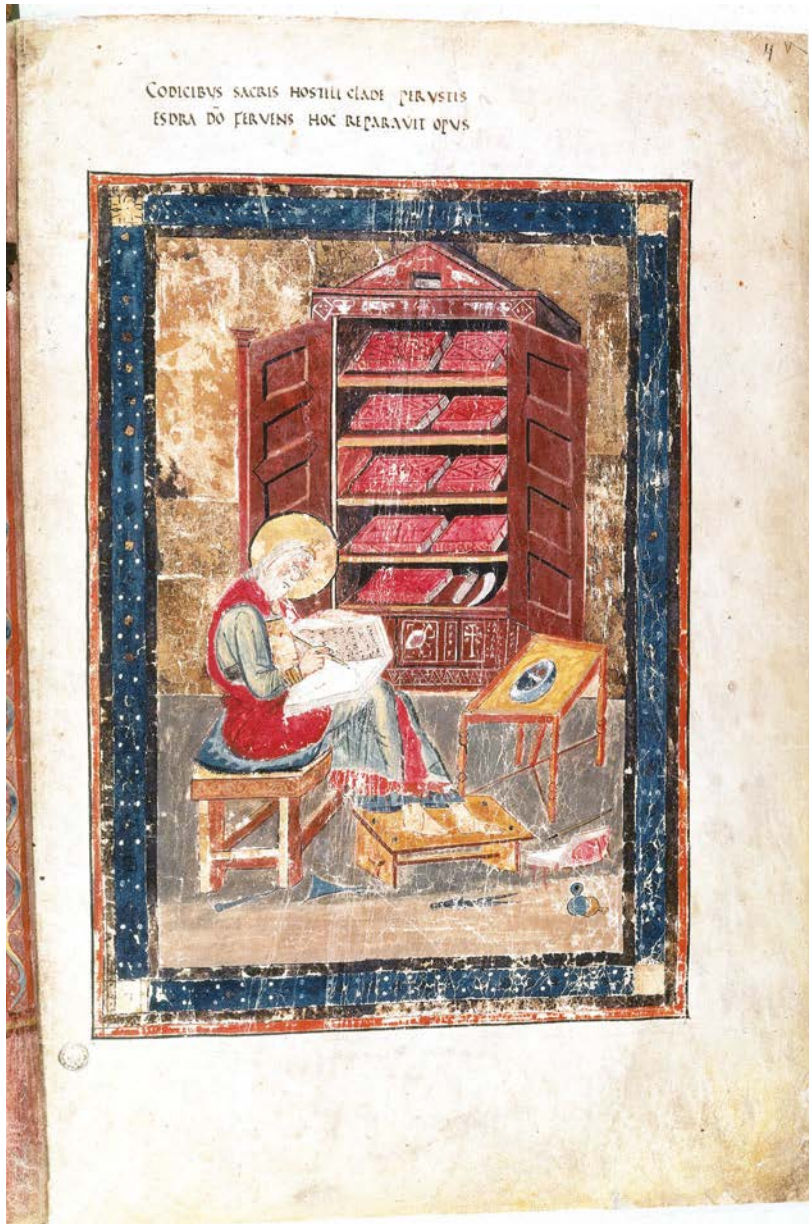 4 V
CODICIBVS SACRIS HOSTILI CLADE PERVSTIS
ESDRA DŌ FERVENS HOC REPARAVIT OPVS